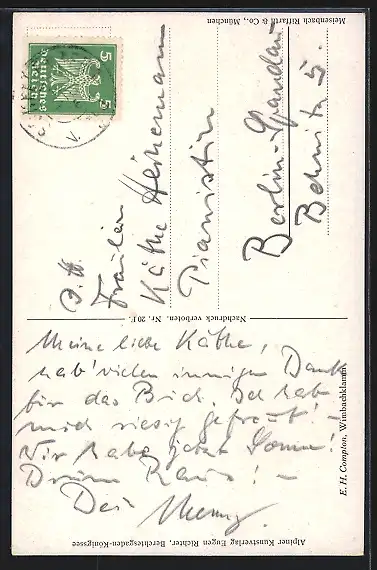 Meisenbach Riffarth & Co., München
5 5
Deutsches
Reich
Fräulein
Käthe
Pianistin
Berlin-Spandau
Behnitz 5.
Nachdruck verboten. Nr. 20 F.
Meine liebe Käthe,
hab' vielen innigen Dank
für das Buch. Ich hab
mich riesig gefreut! –
Wir haben jetzt Sonne!
Drum Raus! –
Dein
E. H. Compton, Wimbachklamm
Alpiner Kunstverlag Eugen Richter, Berchtesgaden-Königssee